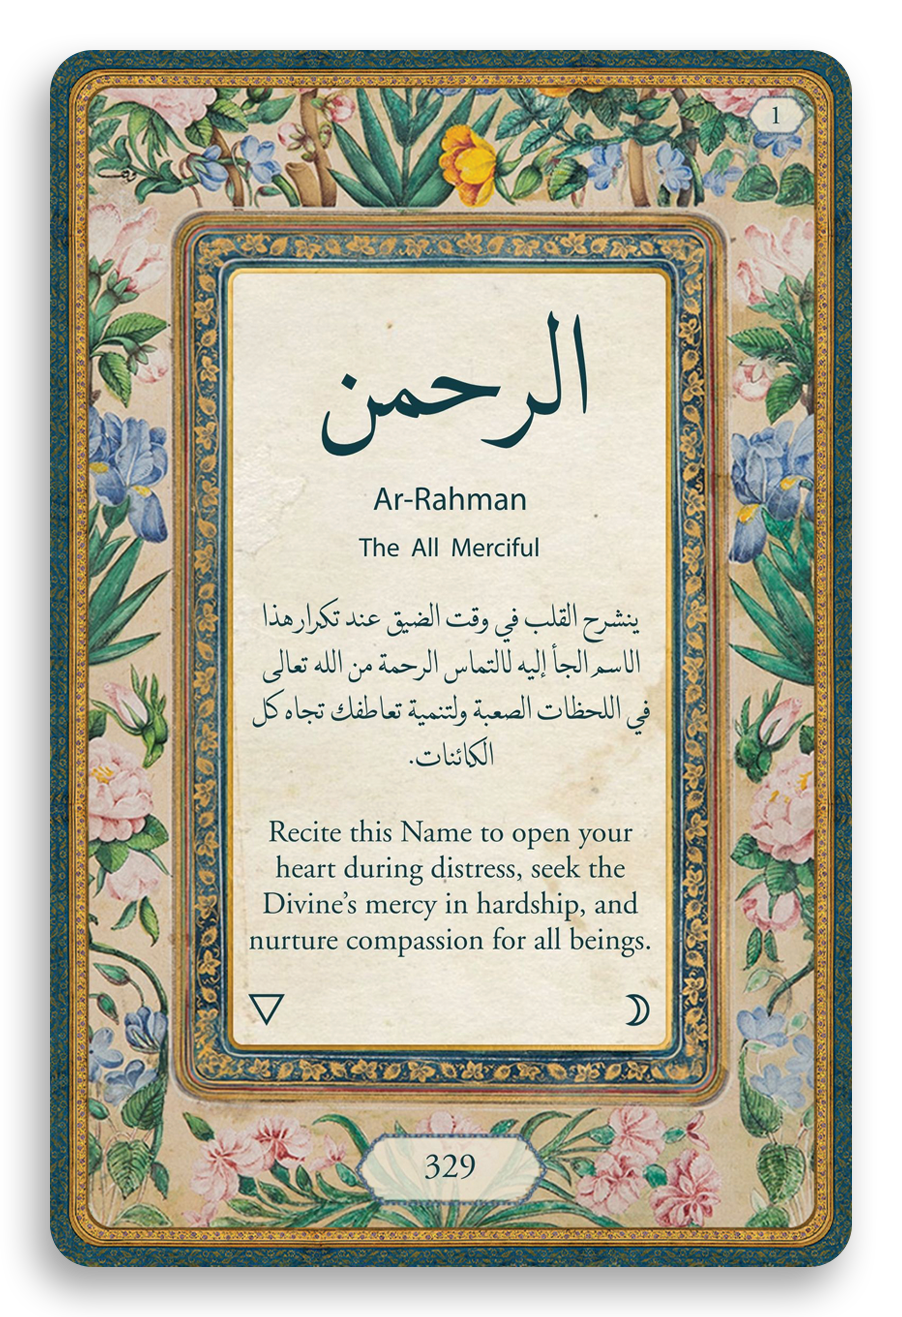 1
الرحمن
Ar-Rahman
The All Merciful
ينشرح القلب في وقت الضيق عند تكرار هذا
الاسم الجأ إليه لالتماس الرحمة من الله تعالى
في اللحظات الصعبة ولتنمية تعاطفك تجاه كل
الكائنات.
Recite this Name to open your
heart during distress, seek the
Divine’s mercy in hardship, and
nurture compassion for all beings.
329